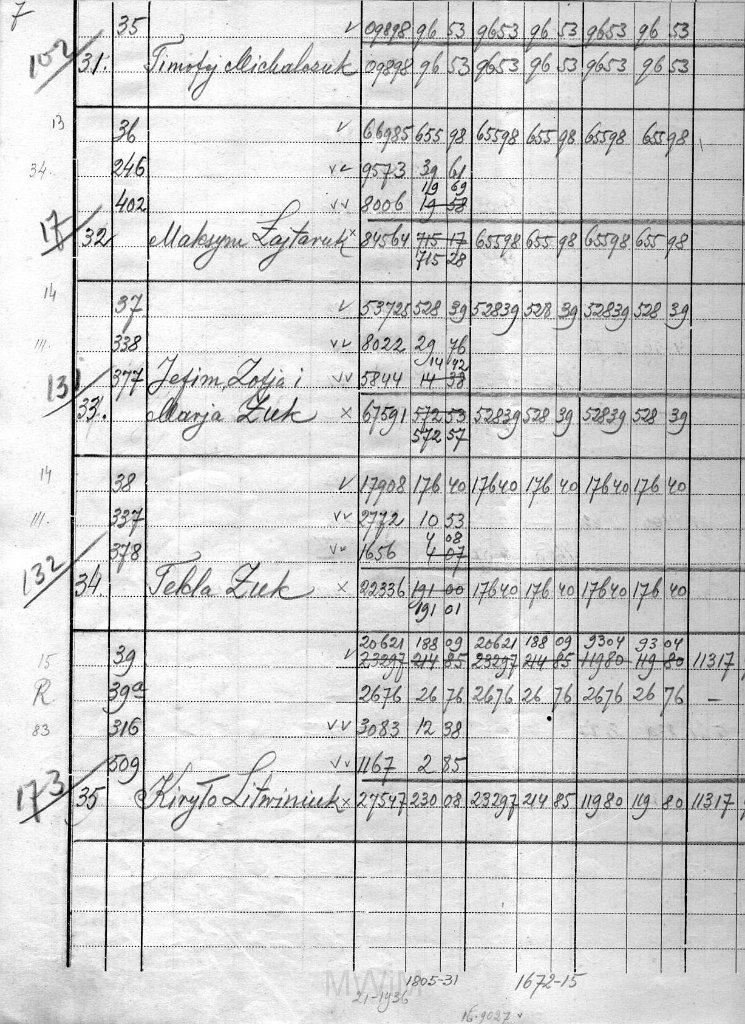 7
35 √ 09898 96 53 9653 96 53 9653 96 53
102 31. Timofy Michalczuk 09898 96 53 9653 96 53 9653 96 53
13 36 √ 66985 655 98 65598 655 98 65598 655 98
34 246 √√ 9573 39 61
119 69
402 √√ 8006 19 58
17 32 Maksym Łajtaruk x 84564 715 17 65598 655 98 65598 655 98
715 28
14 37 √ 53725 528 39 52839 528 39 52839 528 39
111. 338 √√ 8022 29 76
14 42
131 377 Jefim, Zofja i √√ 5844 14 38
33. Marja Żuk x 67591 572 53 52839 528 39 52839 528 39
572 57
14 38 √ 17908 176 40 17640 176 40 17640 176 40
111. 337 √√ 2772 10 53
4 08
378 √√ 1656 4 07
132 34. Tekla Żuk x 22336 191 00 17640 176 40 17640 176 40
191 01
20621 188 09 20621 188 09 9304 93 04
15 39 √ 23297 214 85 23297 214 85 11980 119 80 11317
R 39a 2676 26 76 2676 26 76 2676 26 76 —
83 316 √√ 3083 12 38
509 √√ 1167 2 85
173 35 Kiryło Litwiniuk x 27547 230 08 23297 214 85 11980 119 80 11317
MWiM
1805-31 1672-15
21-1936
16.9027